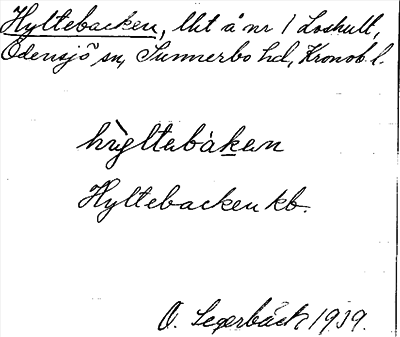 Hyltebacken, lht å nr 1 Loshult,
Odensjö sn, Sunnerbo hd, Kronob. l.
hỳltabàkan
Hyltebacken kb.
O. Segerbäck 1939.